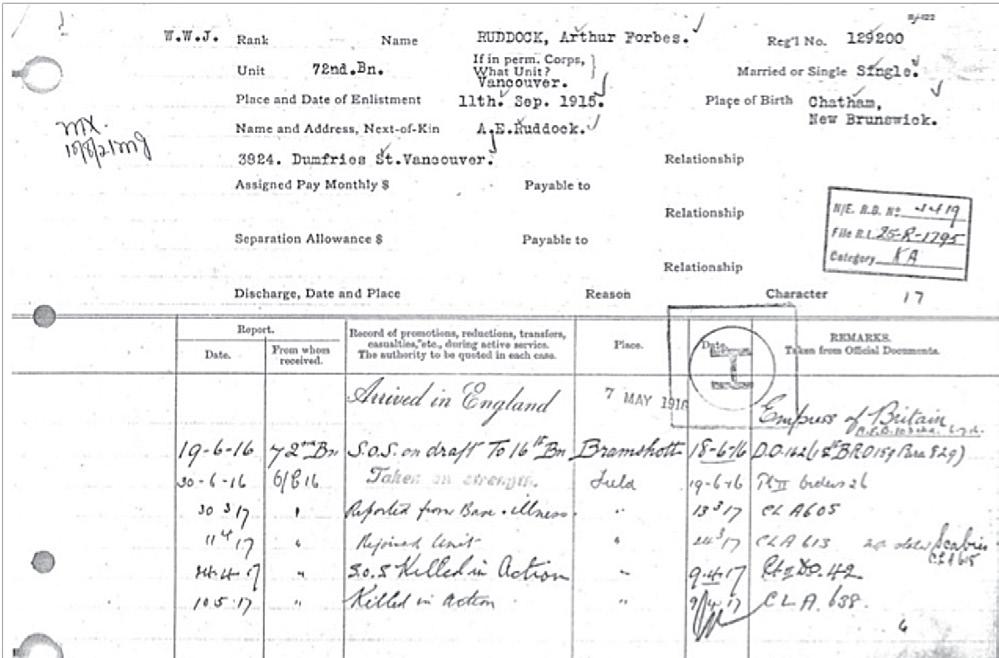 W.W.J. Rank Name RUDDOCK, Arthur Forbes. Reg'l No. 129200
Unit 72nd.Bn. If in perm. Corps, What Unit? Married or Single Single.
Vancouver.
Place and Date of Enlistment 11th. Sep. 1915. Place of Birth Chatham,
New Brunswick.
Name and Address, Next-of-Kin A.E.Ruddock.
3824. Dumfries St.Vancouver. Relationship
Assigned Pay Monthly $ Payable to
Relationship
N/E. R.D. No
File R.L. 25-R-1795
Category KA
Separation Allowance $ Payable to
Relationship
Discharge, Date and Place Reason Character 17
Report. Record of promotions, reductions, transfers, casualties, etc., during active service. The authority to be quoted in each case. Place. Date. REMARKS.
Date. From whom received. Taken from Official Documents.
Arrived in England 7 MAY 1916 Empress of Britain
19-6-16 72nd Bn S.O.S. on draft To 16th Bn Bramshott 18-6-16 D.O. 142
30-6-16 Taken on strength. Field 19-6-16 Pt II orders 26
30 3 17 " Reported from Base illness " 13 3 17 CL A605
11 4 17 " Rejoined Unit " 24 3 17 CL A 613 Scabies
24.4.17 " S.O.S Killed in Action " 9.4.17 Pt II DO. 42
10.5.17 " Killed in action " 9/4/17 C L A. 638.